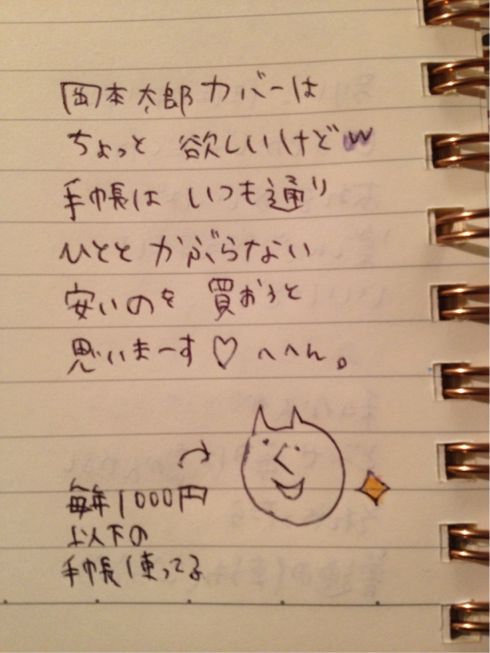 岡本太郎カバーは
ちょっと 欲しいけどw
手帳は いつも通り
ひとと かぶらない
安いのを 買おうと
思いまーす♡ へへん。
毎年1000円
以下の
手帳使ってる